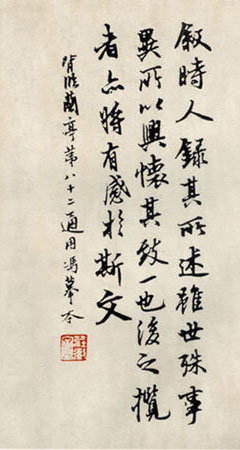 叙時人録其所述雖世殊事
異所以興懷其致一也後之攬
者亦將有感於斯文
背臨蘭亭第八十二通用馮摹本